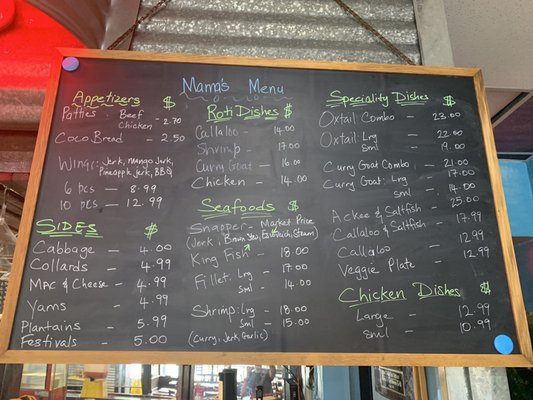 Mama's Menu
Appetizers $
Patties: Beef
Chicken - 2.70
Coco Bread - 2.50
Wings:- Jerk, Mango Jerk,
Pineapple Jerk, BBQ
6 pcs - 8.99
10 pcs - 12.99
SIDES $
Cabbage - 4.00
Collards - 4.99
Mac & Cheese - 4.99
Yams - 4.99
Plantains - 5.99
Festivals - 5.00
Roti Dishes $
Callaloo - 14.00
Shrimp - 17.00
Curry Goat - 16.00
Chicken - 14.00
Seafoods $
Snapper - Market Price
(Jerk, Brown Stew, Escovitch, Steam)
King Fish - 18.00
Fillet: Lrg - 17.00
Sml - 14.00
Shrimp: Lrg - 18.00
Sml - 15.00
(Curry, Jerk, Garlic)
Speciality Dishes $
Oxtail Combo - 23.00
Oxtail: Lrg - 22.00
Sml - 19.00
Curry Goat Combo - 21.00
Curry Goat: Lrg - 17.00
Sml - 14.00
Ackee & Saltfish - 25.00
Callaloo & Saltfish - 17.99
Callaloo - 12.99
Veggie Plate - 12.99
Chicken Dishes $
Large - 12.99
Sml - 10.99